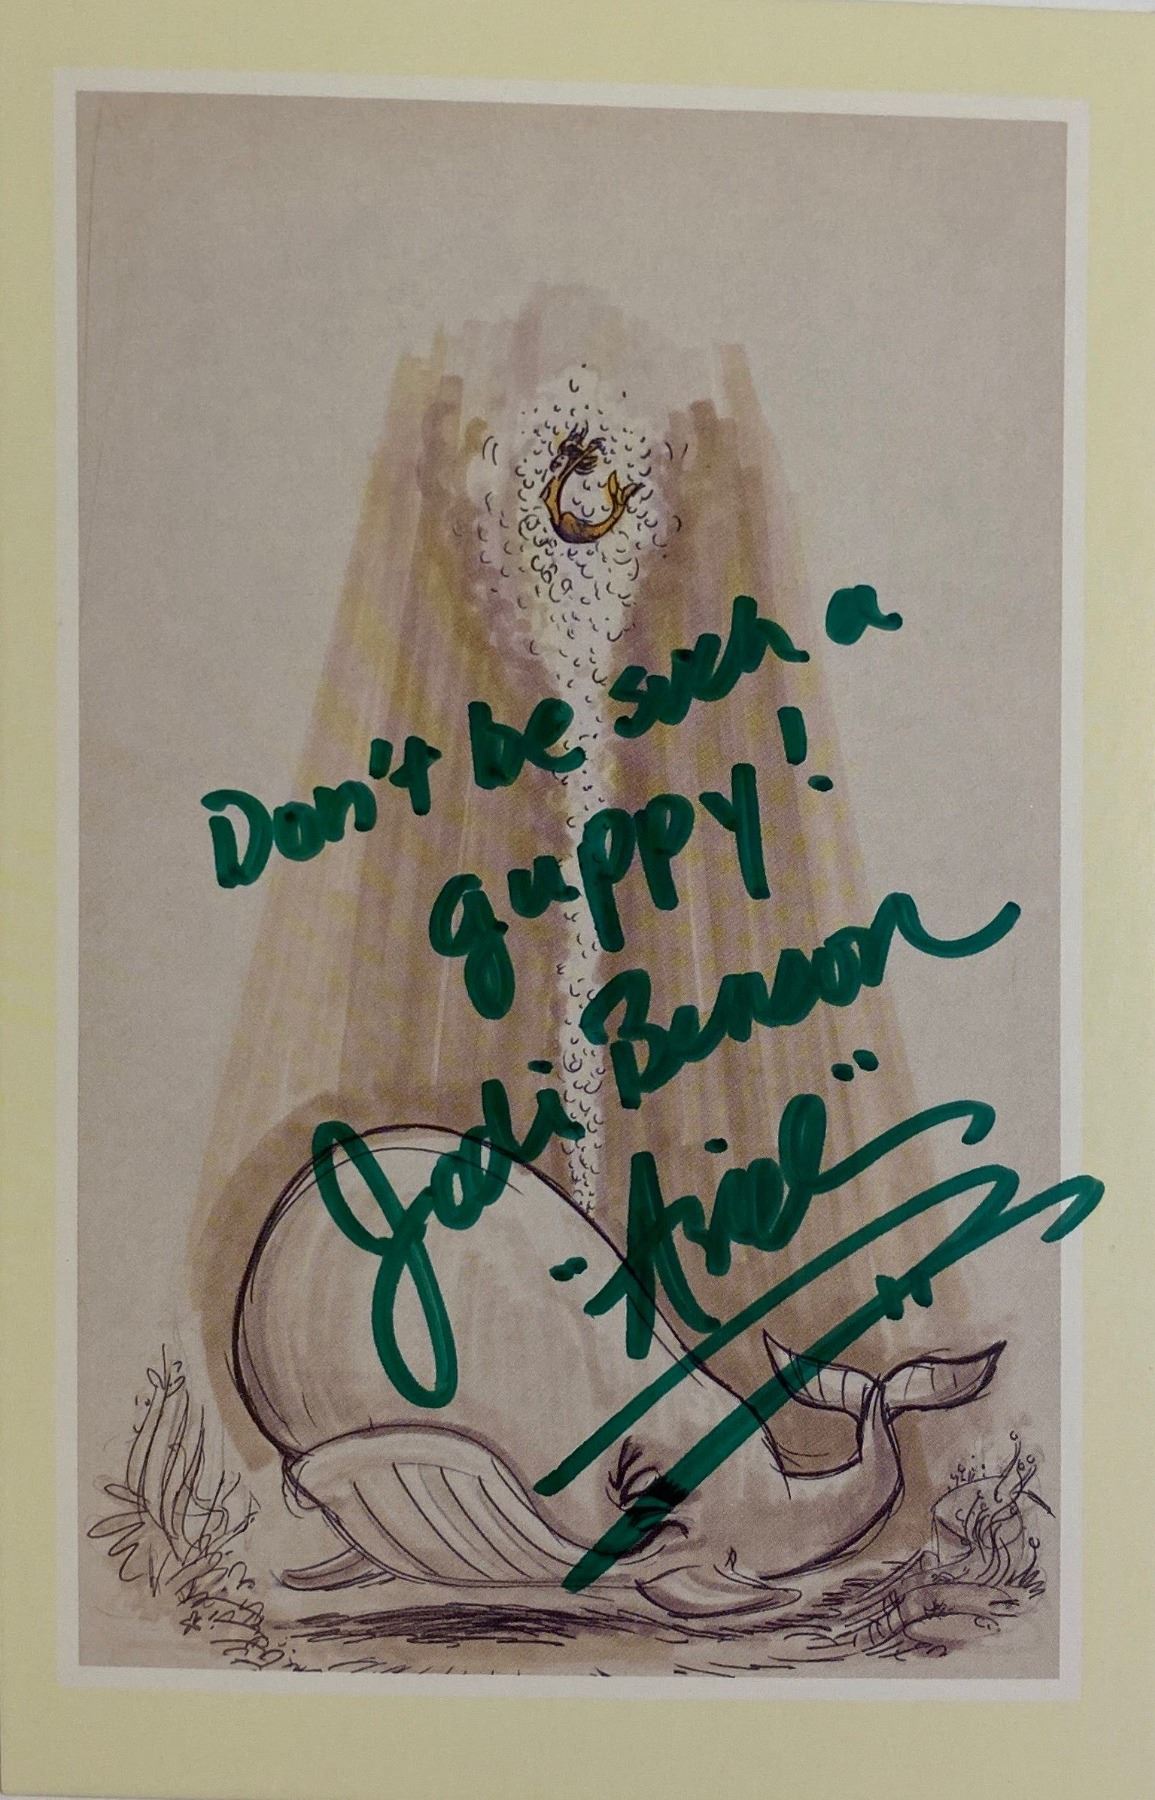 Don't be such a
guppy!
Jodi Benson
"Ariel"